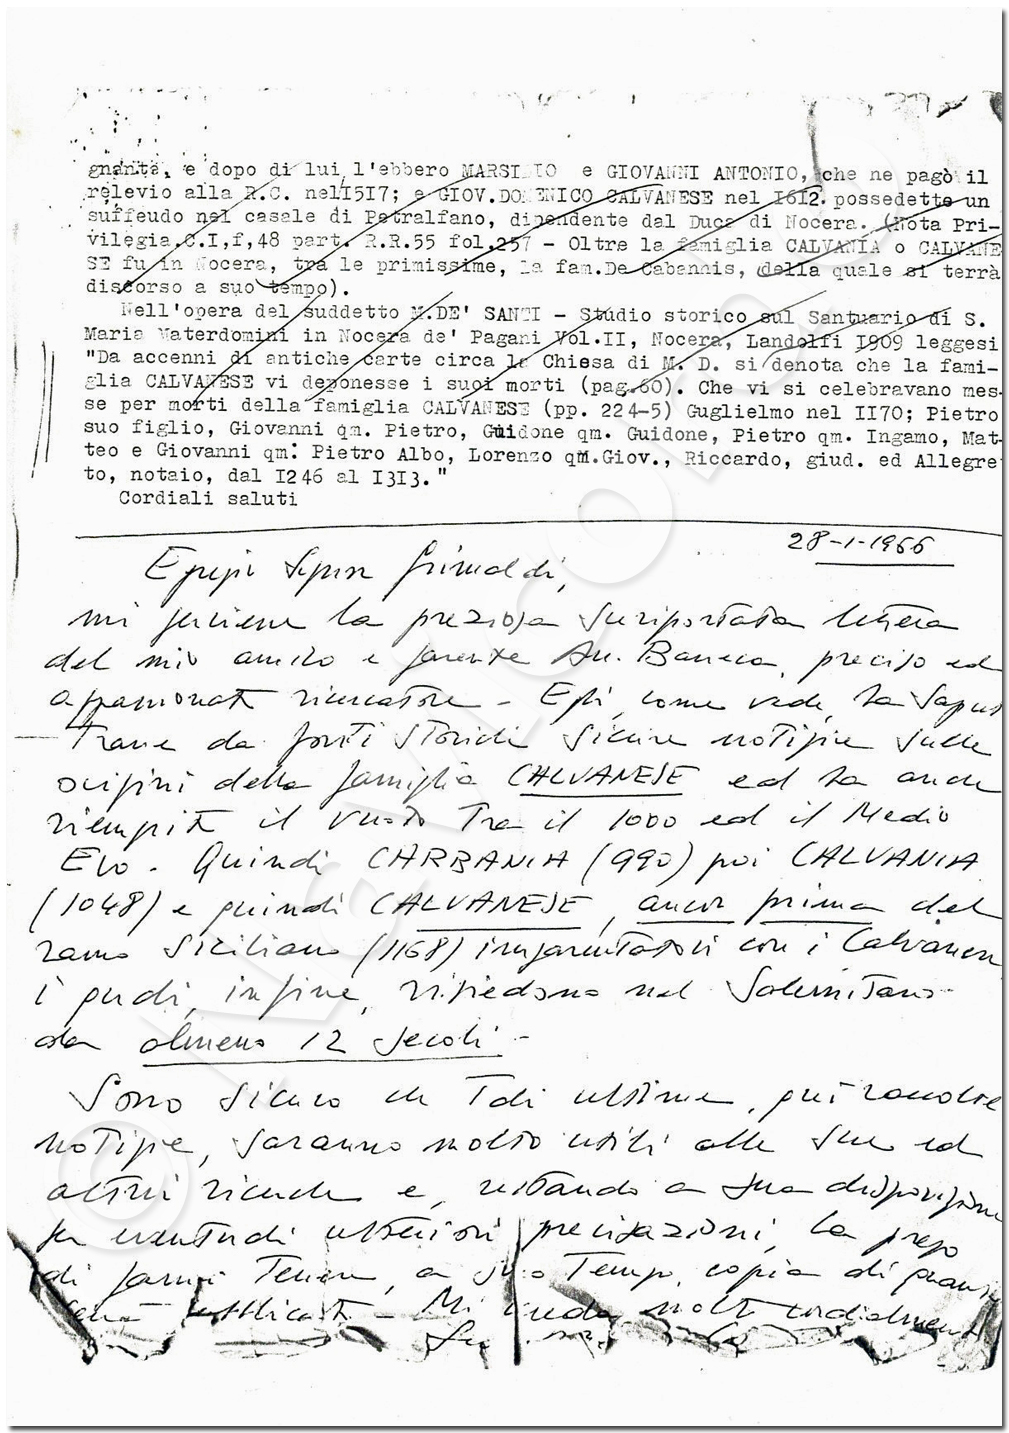 gnante, e dopo di lui l'ebbero MARSILIO e GIOVANNI ANTONIO, che ne pagò il
relevio alla R.C. nel I5I7; e GIOV.DOMENICO CALVANESE nel I6I2. possedette un
suffeudo nel casale di Petralfano, dipendente dal Duca di Nocera. (Nota Pri-
vilegia,C.I,f,48 part. R.R.55 fol.257 - Oltre la famiglia CALVANIA o CALVANE
SE fu in Nocera, tra le primissime, la fam.De Cabannis, della quale si terrà
discorso a suo tempo).
Nell'opera del suddetto M.DE' SANTI - Studio storico sul Santuario di S.
Maria Materdomini in Nocera de' Pagani Vol.II, Nocera, Landolfi I909 leggesi
"Da accenni di antiche carte circa la Chiesa di M. D. si denota che la fami-
glia CALVANESE vi deponesse i suoi morti (pag.60). Che vi si celebravano mes-
se per morti della famiglia CALVANESE (pp. 224-5) Guglielmo nel II70; Pietro
suo figlio, Giovanni qm. Pietro, Guidone qm. Guidone, Pietro qm. Ingamo, Mat-
teo e Giovanni qm: Pietro Albo, Lorenzo qm.Giov., Riccardo, giud. ed Allegre
to, notaio, dal I246 al I3I3."
Cordiali saluti
28-1-1966
Egregio Signor Grimaldi,
mi perviene la preziosa suriportata lettera
del mio amico e parente Av. Baneca, preciso ed
appassionato ricercatore - Egli, come vede, ha saputo
trarre da fonti storiche sicure notizie sulle
origini della famiglia CALVANESE ed ha anche
riempito il vuoto tra il 1000 ed il Medio
Evo. Quindi CARBANIA (990) poi CALVANIA
(1048) e quindi CALVANESE, ancor prima del
ramo Siciliano (1168) imparentatosi con i Calvanese
i quali, infine, risiedono nel Salernitano
da almeno 12 secoli -
Sono sicuro che tali ultime, qui raccolte
notizie, saranno molto utili alle Sue ed
altrui ricerche e, restando a Sua disposizione
per eventuali ulteriori precisazioni, La prego
di farmi tenere, a suo tempo, copia di quanto
sarà pubblicato - Mi creda molto cordialmente